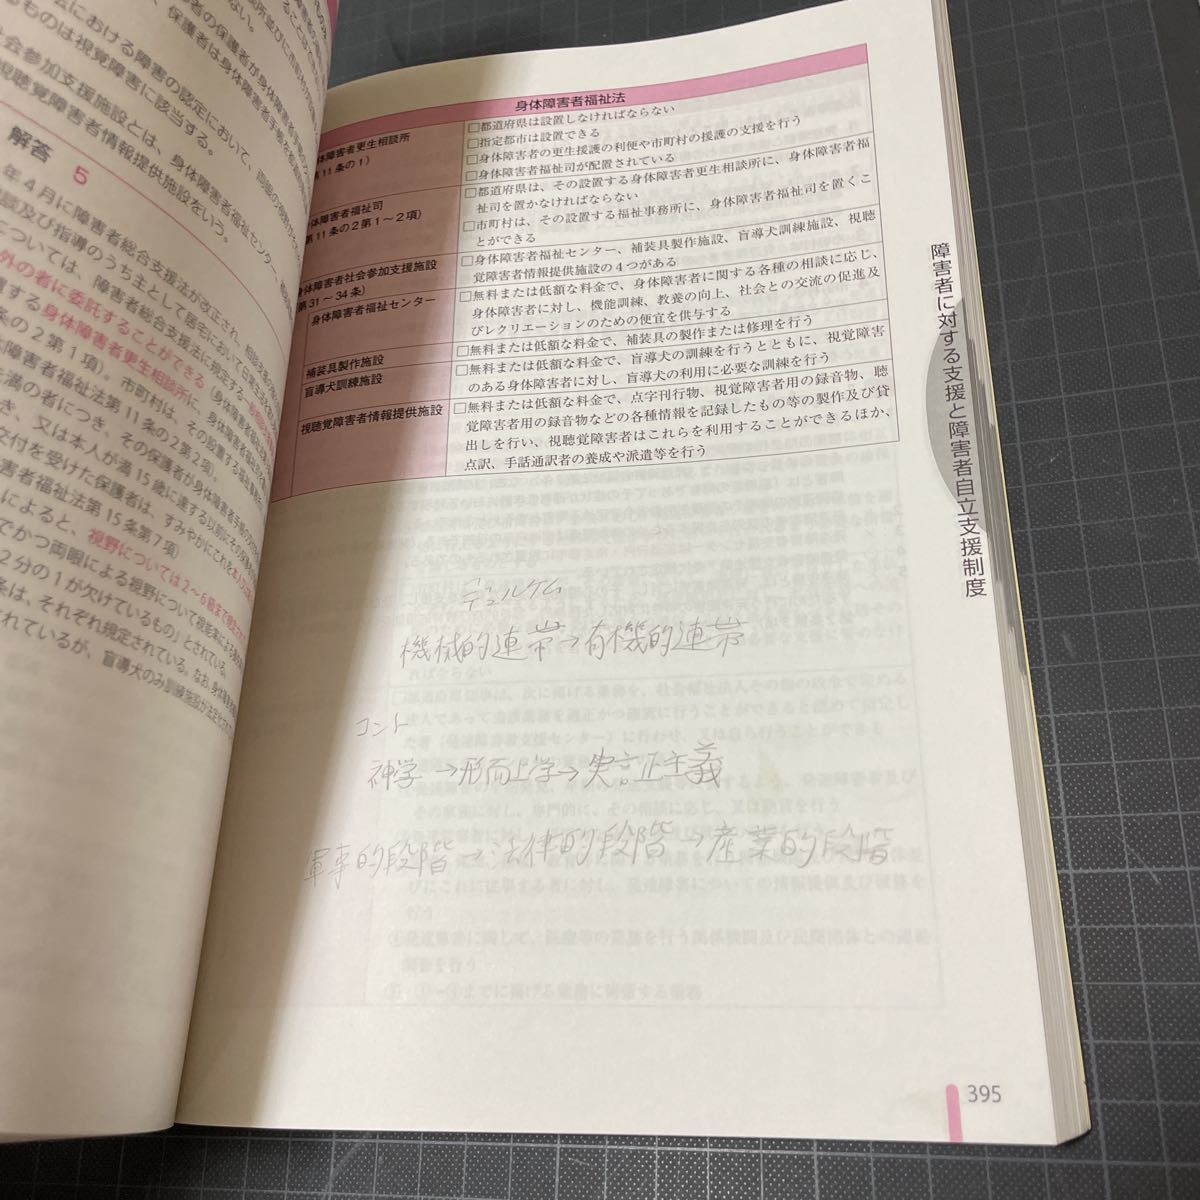 会における障害の認定において、
ものは視覚障害に該当する。
社会参加支援施設とは、身体障害者福祉センター、
視聴覚障害者情報提供施設をいう。
解答 5
年4月に障害者総合支援法が改正され、
については、障害者総合支援法に規定する
外の者に委託することができる
身体障害者更生相談所に、
条の2第1項)。市町村は、その設置する福祉事務所に、
障害者福祉法第11条の2第2項)。
満の者につき、その保護者が身体障害者手帳の
き、又は本人が満15歳に達する以前に
交付を受けた保護者は、すみやかにこれを本人に
害者福祉法第15条第7項)
によると、視野については2~6級まで
でかつ両眼による視野について視能率による
2分の1が欠けているもの」とされている。
条は、それぞれ規定されている。なお、
身体障害者福祉法
体障害者更生相談所
第11条の1)
□都道府県は設置しなければならない
□指定都市は設置できる
□身体障害者の更生援護の利便や市町村の援護の支援を行う
□身体障害者福祉司が配置されている
身体障害者福祉司
第11条の2第1~2項)
□都道府県は、その設置する身体障害者更生相談所に、身体障害者福
祉司を置かなければならない
□市町村は、その設置する福祉事務所に、身体障害者福祉司を置くこ
とができる
身体障害者社会参加支援施設
第31~34条)
□身体障害者福祉センター、補装具製作施設、盲導犬訓練施設、視聴
覚障害者情報提供施設の4つがある
身体障害者福祉センター
□無料または低額な料金で、身体障害者に関する各種の相談に応じ、
身体障害者に対し、機能訓練、教養の向上、社会との交流の促進及
びレクリエーションのための便宜を供与する
補装具製作施設
□無料または低額な料金で、補装具の製作または修理を行う
盲導犬訓練施設
□無料または低額な料金で、盲導犬の訓練を行うとともに、視覚障害
のある身体障害者に対し、盲導犬の利用に必要な訓練を行う
視聴覚障害者情報提供施設
□無料または低額な料金で、点字刊行物、視覚障害者用の録音物、聴
覚障害者用の録音物などの各種情報を記録したもの等の製作及び貸
出しを行い、視聴覚障害者はこれらを利用することができるほか、
点訳、手話通訳者の養成や派遣等を行う
デュルケム
機械的連帯→有機的連帯
コント
神学→形而上学→実証主義
軍事的段階→法律的段階→産業的段階
障害者に対する支援と障害者自立支援制度
395